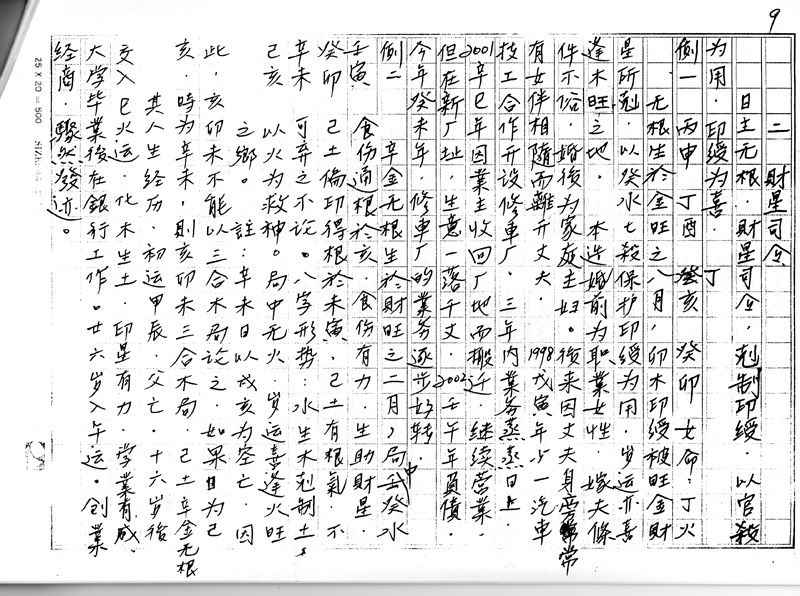 9
二 財星司令
日主无根．財星司令．尅制印綬．以官殺
为用．印綬为喜．
例一 丙申 丁酉 癸亥 癸卯 女命：丁火
丁
无根生於金旺之八月，卯木印綬被旺金財
星所尅．以癸水七殺保护印綬为用．岁运亦喜
逢木旺之地． 本造婚前为职業女性．嫁夫條
件不俗．婚後为家庭主妇。後来因丈夫身常
有女伴相随而離开丈夫． 1998戊寅年与一汽車
技工合作开设修車厂．三年内業务蒸蒸日上．
2001辛巳年因業主收回厂地而搬迁．继续营業．
但在新厂址．生意一落千丈．2002壬午年負債．
今年癸未年．修車厂的業务逐步好转．
例二 辛金无根生於財旺之二月，局中壬癸水
壬寅 食伤通根於亥．食伤有力．生助財星．
癸卯 己土偏印得根於未寅．己土有根氣．不
辛未 可弃之不论。八字形势：水生木尅制土．
己亥 以火为救神。局中无火．岁运喜逢火旺
之鄉。 註：辛未日以戌亥为空亡．因
此．亥卯未不能以三合木局论之．如果日为己
亥．時为辛未，則亥卯未三合木局．己土辛金无根
其人生经历．初运甲辰．父亡．十六岁後
交入巳火运．化木生土．印星有力．学業有成．
大学毕業後在銀行工作。廿六岁入午运。创業
经商．驟然發迹。
25 X 20 = 500